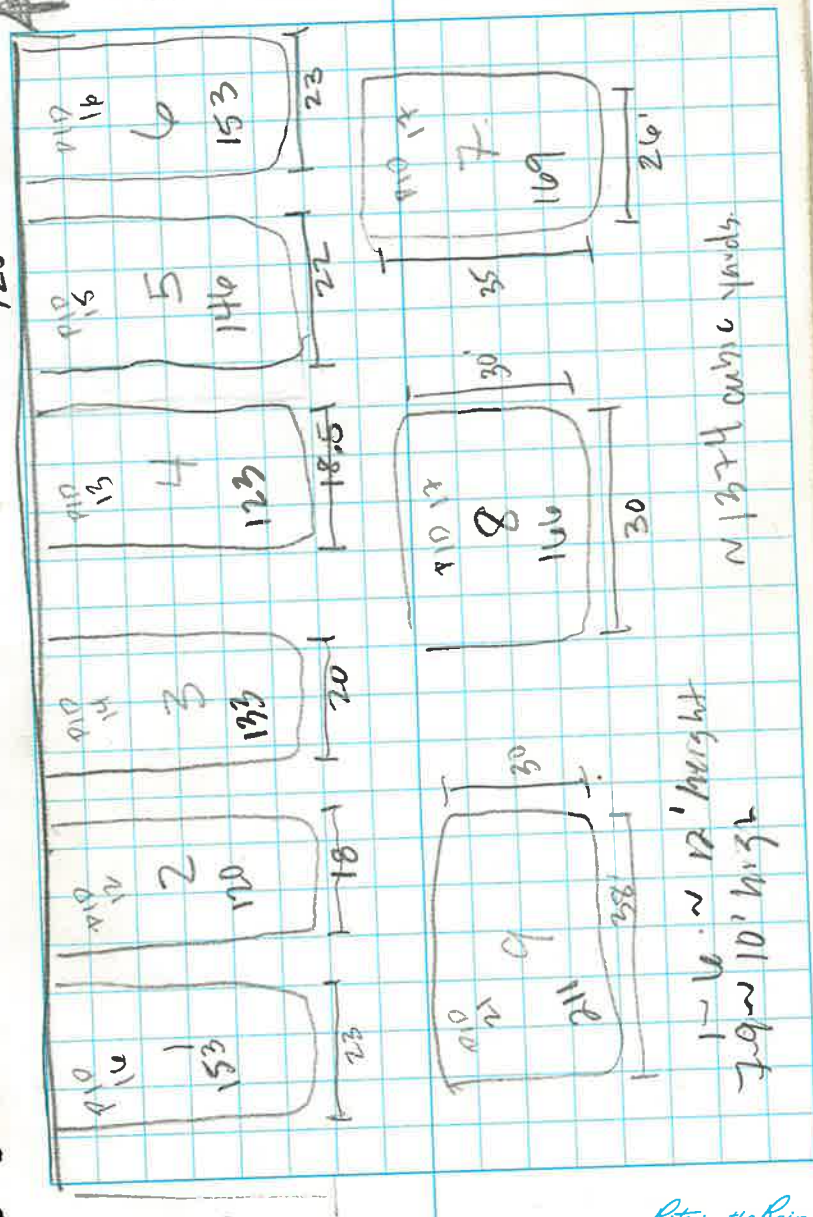 PID
16
1
153
23
PID
12
2
120
18
PID
14
3
133
20
PID
13
4
123
18.5
PID
15
5
146
22
PID
16
6
153
23
PID
21
9
211
30'
38'
PID 17
8
166
30'
30
PID 17
7
169
35
26'
1-6 ~ 12' height
7-9 ~ 10' high
~ 1374 cubic yards